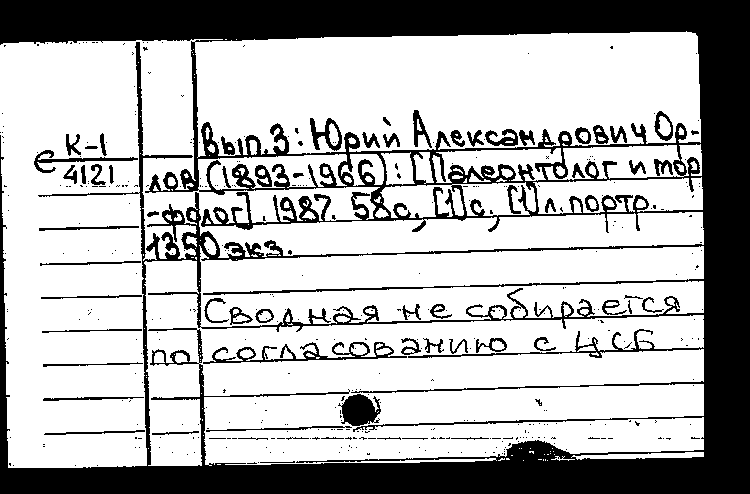 Вып.3: Юрий Александрович Ор-
е К-1
4121
лов (1893-1966): [Палеонтолог и мор
-фолог]. 1987. 58с., [1]с., [1]л. портр.
1350 экз.
Сводная не собирается
по согласованию с ЦСБ